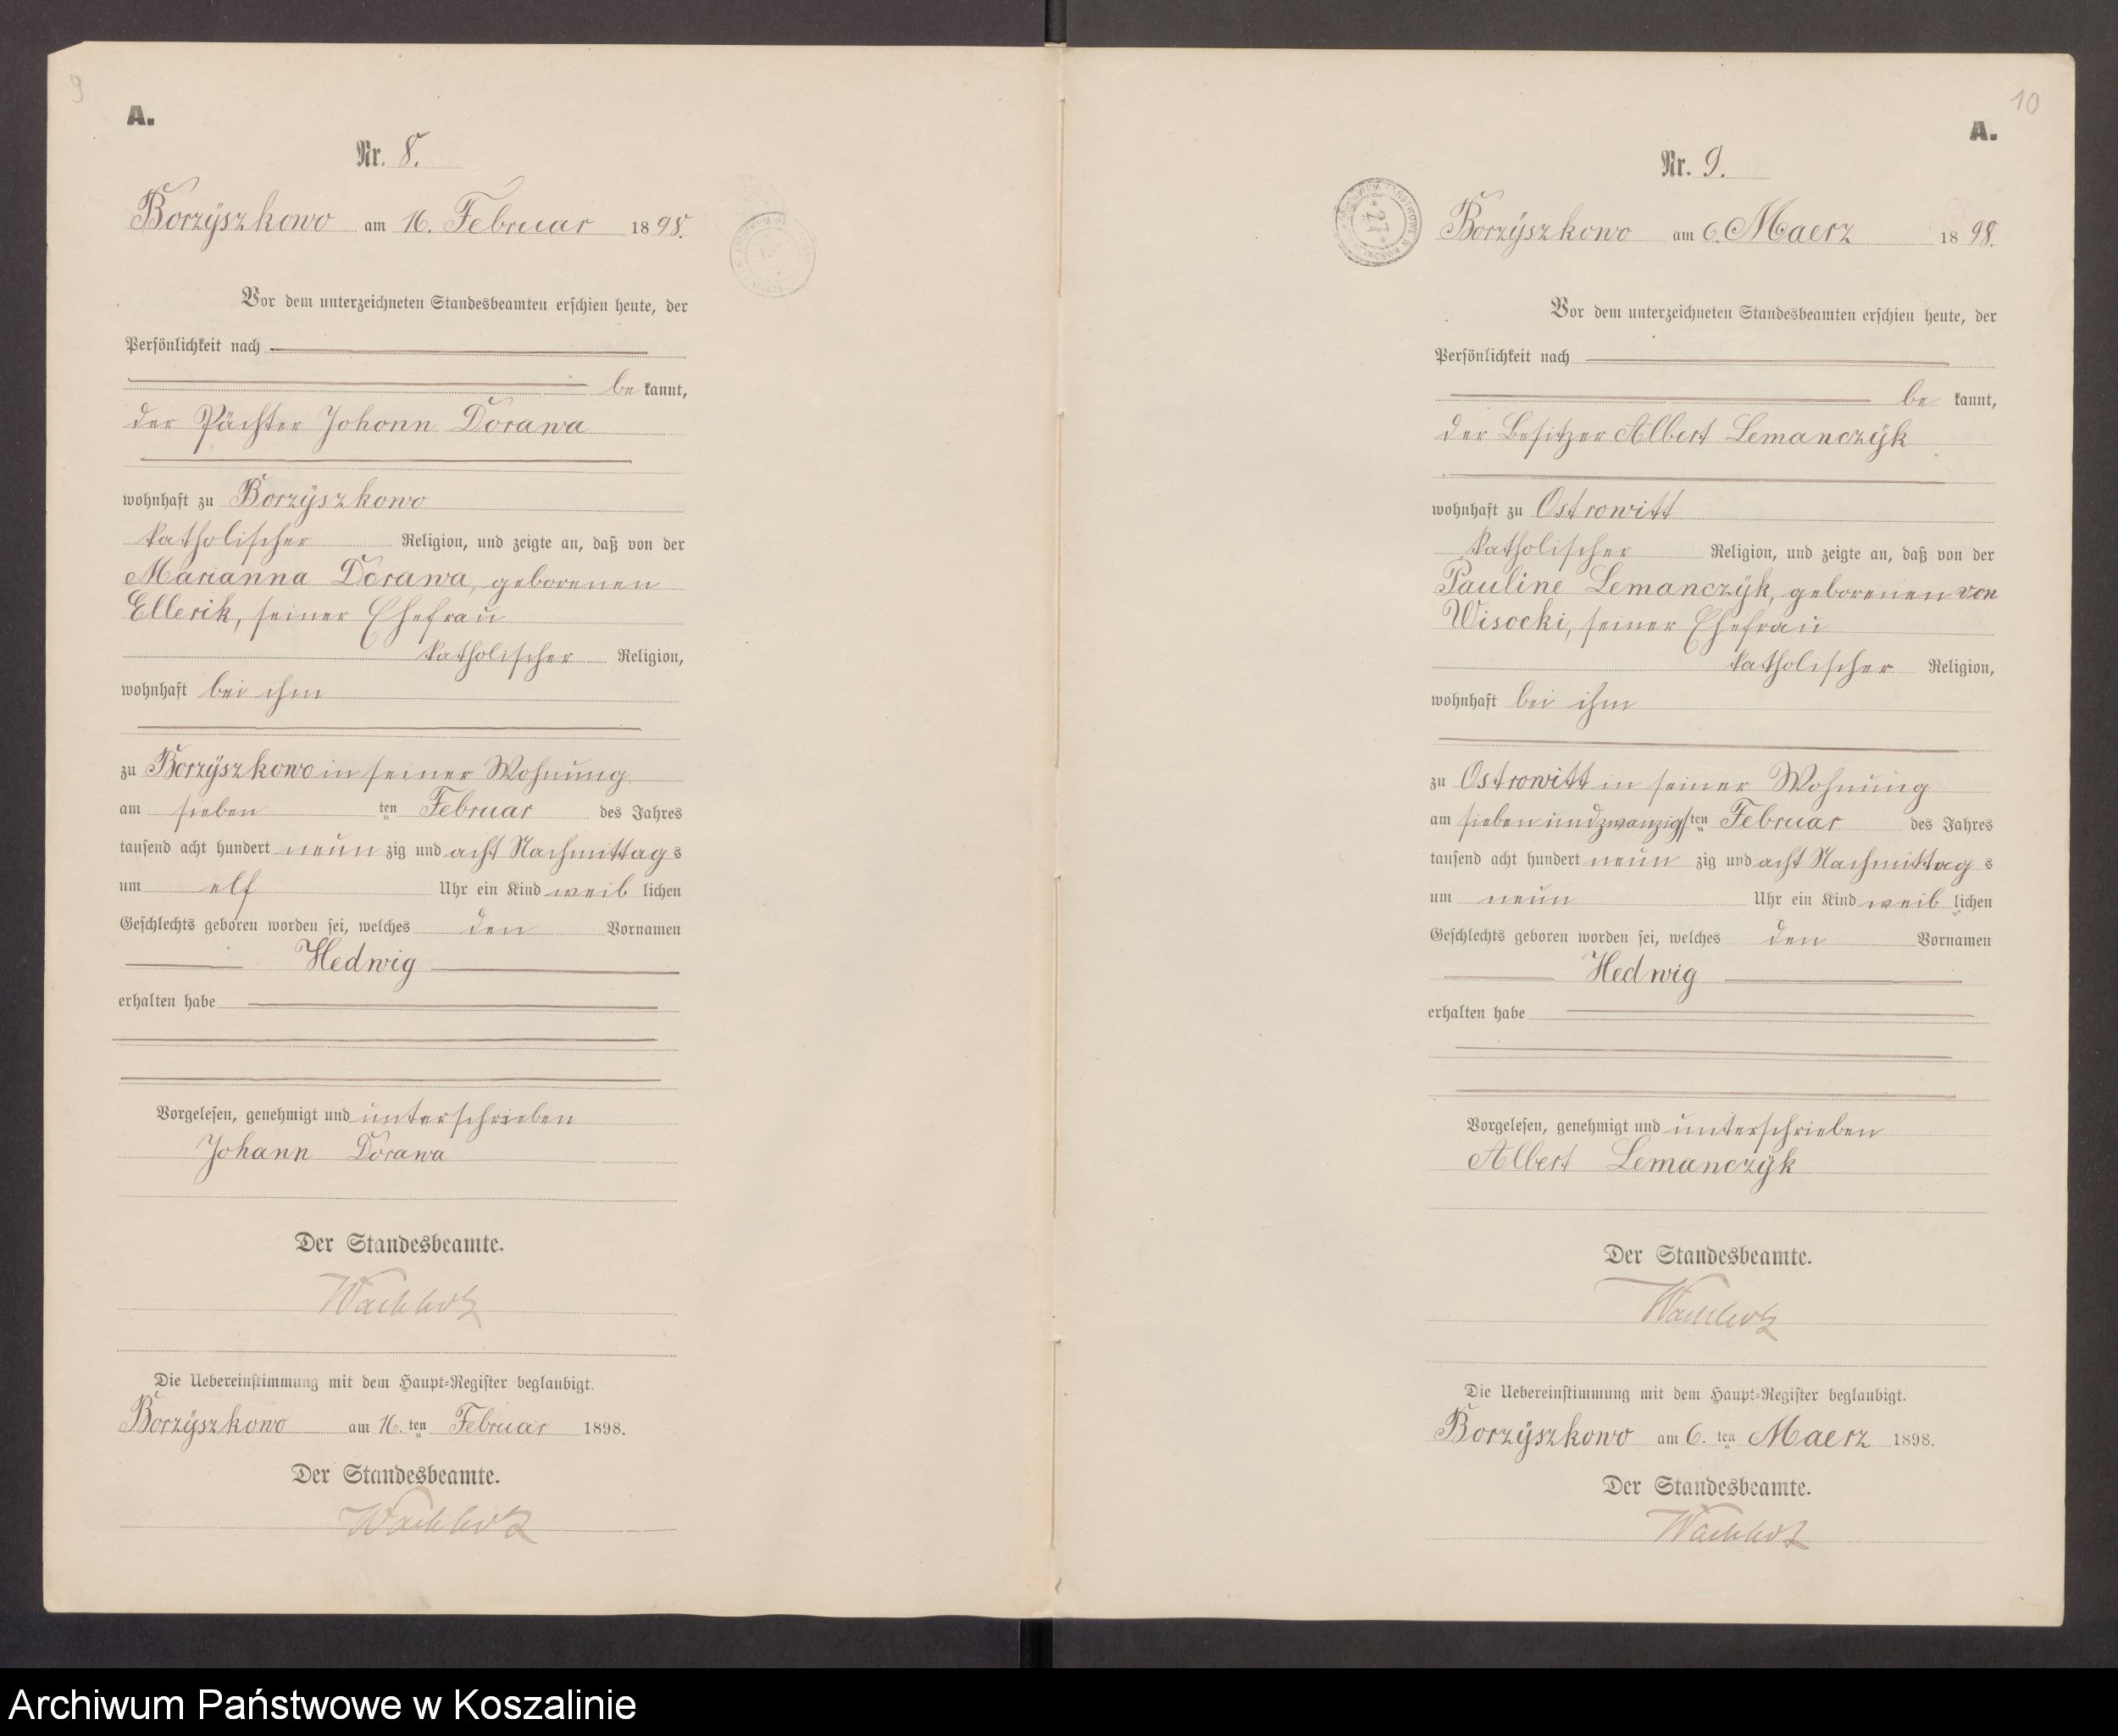 9
A.
Nr. 8.
Borzÿszkowo am 16. Februar 1898.
Vor dem unterzeichneten Standesbeamten erschien heute, der
Persönlichkeit nach
be kannt,
der Pächter Johann Dorawa
wohnhaft zu Borzÿszkowo
katholischer Religion, und zeigte an, daß von der
Marianna Dorawa, geborenen
Ellerik, seiner Ehefrau
katholischer Religion,
wohnhaft bei ihm
zu Borzÿszkowo in seiner Wohnung
am sieben ten Februar des Jahres
tausend acht hundert neun zig und acht Nachmittag s
um elf Uhr ein Kind weib lichen
Geschlechts geboren worden sei, welches den Vornamen
Hedwig
erhalten habe
Vorgelesen, genehmigt und unterschrieben
Johann Dorawa
Der Standesbeamte.
Wachholz
Die Uebereinstimmung mit dem Haupt-Register beglaubigt.
Borzÿszkowo am 16. ten Februar 1898.
Der Standesbeamte.
Wachholz
10
A.
Nr. 9.
Borzÿszkowo am 6. Maerz 1898.
Vor dem unterzeichneten Standesbeamten erschien heute, der
Persönlichkeit nach
be kannt,
der Besitzer Albert Lemanczÿk
wohnhaft zu Ostrowitt
katholischer Religion, und zeigte an, daß von der
Pauline Lemanczÿk, geborenen von
Wisocki, seiner Ehefrau
katholischer Religion,
wohnhaft bei ihm
zu Ostrowitt in seiner Wohnung
am siebenundzwanzigsten Februar des Jahres
tausend acht hundert neun zig und acht Nachmittag s
um neun Uhr ein Kind weib lichen
Geschlechts geboren worden sei, welches den Vornamen
Hedwig
erhalten habe
Vorgelesen, genehmigt und unterschrieben
Albert Lemanczÿk
Der Standesbeamte.
Wachholz
Die Uebereinstimmung mit dem Haupt-Register beglaubigt.
Borzÿszkowo am 6. ten Maerz 1898.
Der Standesbeamte.
Wachholz
Archiwum Państwowe w Koszalinie